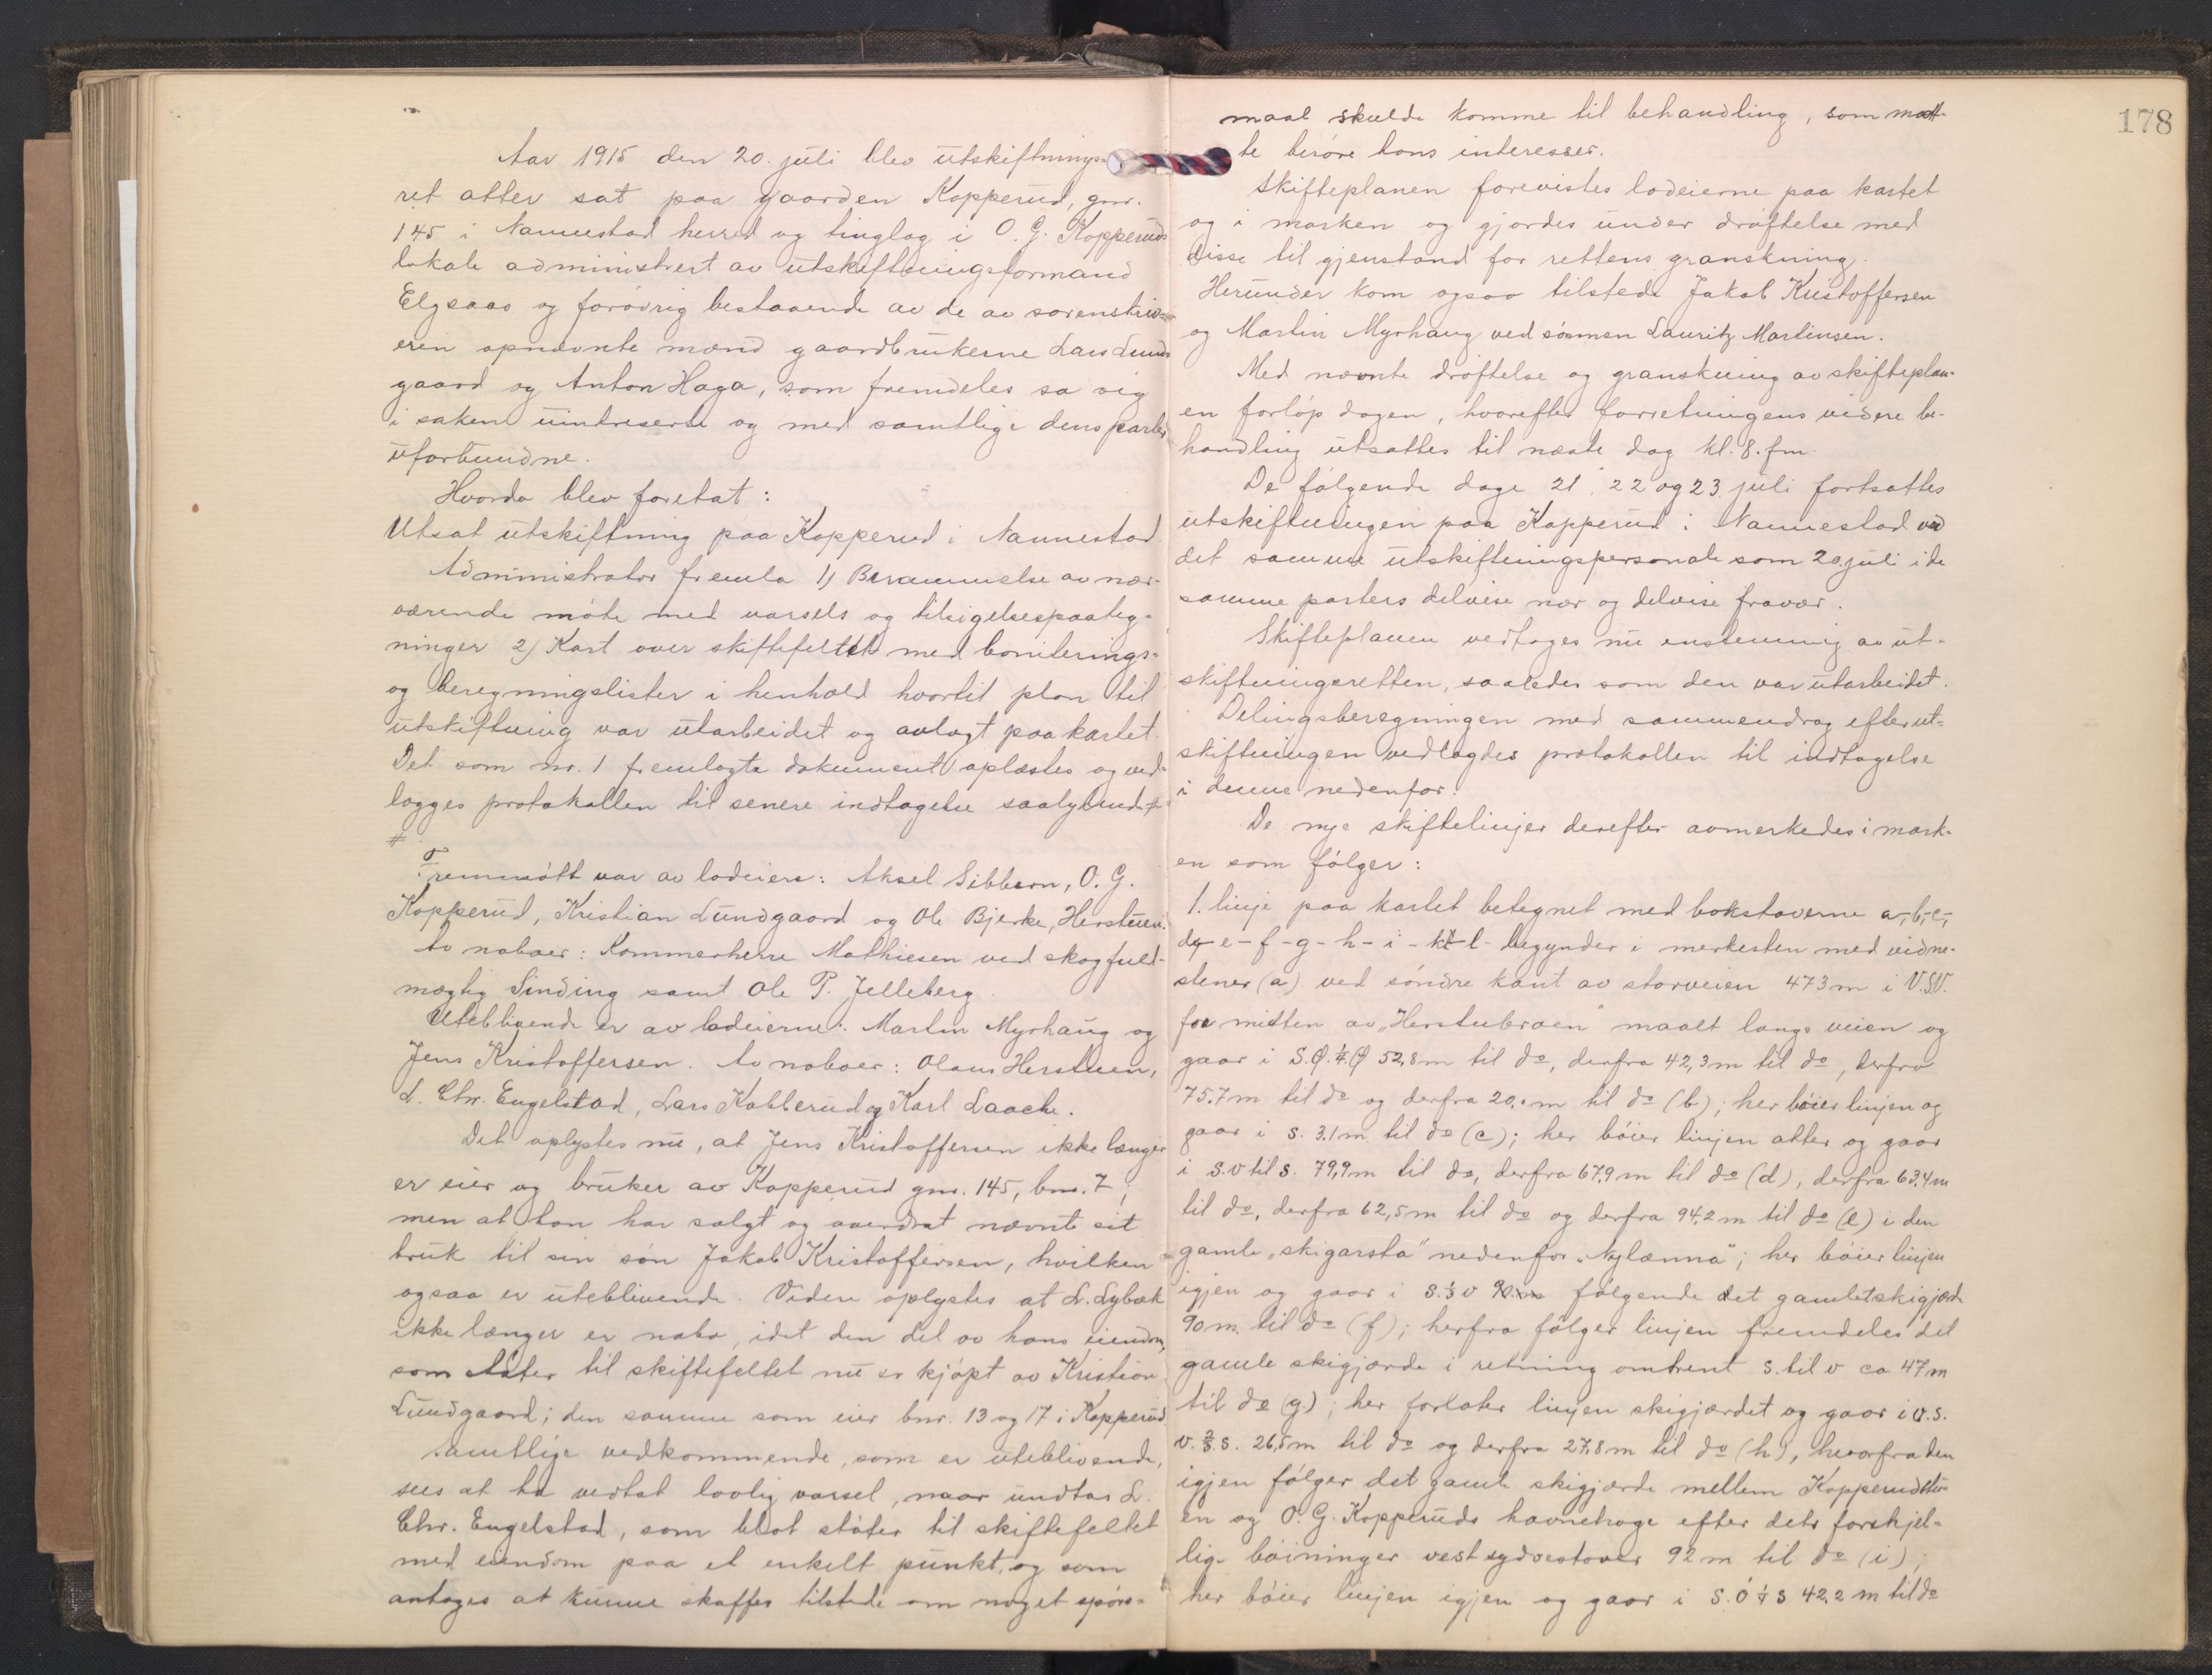 Aar 1915 den 20. juli blev utskiftnings-
ret atter sat paa gaarden Kopperud, gnr.
145 i Nannestad herred og tinglag i O. G. Kopperuds
lokale administrert av utskiftningsformand
Elgsaas og forøvrig bestaaende av de av sorenskriv-
eren opnævnte mænd gaardbrukerne Lars Lund-
gaard og Anton Haga, som fremdeles sa sig
i saken uintreserte og med samtlige dens parter
uforbundne.
Hvorda blev foretat:
Utsat utskiftning paa Kopperud i Nannestad.
Administrator fremla 1) Berammelse av nær-
værende møte med varsels og tilsigelsespaateg-
ninger 2) Kart over skiftefeltet med boniterings-
og beregningslister i henhold hvortil plan til
utskiftning var utarbeidet og avlagt paa kartet.
Det som nr. 1 fremlagte dokument oplæstes og ved-
lægges protokollen til senere indtagelse saalydende #
#
Fremmøtt var av lodeiere: Aksel Sibbern, O. G.
Kopperud, Kristian Lundgaard og Ole Bjerke, Herstuen.
Av naboer: Kammerherre Mathiesen ved skogfuld-
mægtig Sinding samt Ole P. Jelleberg.
Uteblivende er av lodeierne: Martin Myrhaug og
Jens Kristoffersen. Av naboer: Olaus Herstuen,
L. Chr. Engelstad, Lars Kobberud og Karl Laache.
Det oplystes nu, at Jens Kristoffersen ikke længer
er eier og bruker av Kopperud gnr. 145, bnr. 7,
men at han har solgt og overdrat nævnte sit
bruk til sin søn Jakob Kristoffersen, hvilken
ogsaa er uteblivende. Videre oplystes at L. Lybæk
ikke længer er nabo, idet den del av hans eiendom,
som støter til skiftefeltet nu er kjøpt av Kristian
Lundgaard; den samme som eier bnr. 13 og 17 i Kopperud.
Samtlige vedkommende, som er uteblivende,
sees at ha vedtat lovlig varsel, naar undtas L.
Chr. Engelstad, som blot støter til skiftefeltet
med eiendom paa et enkelt punkt, og som
antages at kunne skaffes tilstede om noget spørs-
178
maal skulde komme til behandling, som maat-
te berøre hans interesser.
Skifteplanen forevistes lodeierne paa kartet
og i marken og gjordes under drøftelse med
disse til gjenstand for rettens granskning.
Herunder kom ogsaa tilstede Jakob Kristoffersen
og Martin Myrhaug ved sønnen Lauritz Martinsen.
Med nævnte drøftelse og granskning av skifteplan-
en forløp dagen, hvorefter forretningens videre be-
handling utsattes til næste dag kl. 8. fm.
De følgende dage 21, 22 og 23 juli fortsattes
utskiftningen paa Kopperud i Nannestad ved
det samme utskiftningspersonale som 20 juli i de
samme parters delvise nær og delvise fravær.
Skifteplanen vedtages nu enstemmig av ut-
skiftningsretten, saaledes som den var utarbeidet.
Delingsberegningen med sammendrag efter ut-
skiftningen vedlagdes protokollen til indtagelse
i denne nedenfor.
De nye skiftelinjer derefter avmerkedes i mark-
en som følger:
1. linje paa kartet betegnet med bokstaverne a-, b-, c-,
d- e - f - g - h - i - k - l - begynder i merkesten med vidne-
stener (a) ved søndre kant av storveien 473 m i V.S.V.
for midten av "Herstubroen" maalt langs veien og
gaar i S.Ø. 1/4 Ø 52,8 m til do, derfra 42,3 m til do, derfra
75.7 m til do og derfra 20. m til do (b); her bøier linjen og
gaar i s. 3.1 m til do (c); her bøier linjen atter og gaar
i s.v til s. 79,9 m til do, derfra 67,9 m til do (d), derfra 63,4 m
til do, derfra 62,5 m til do og derfra 94,2 m til do (e) i den
gamle "skigarsta" nedenfor "Nylænna"; her bøier linjen
igjen og gaar i s. 1/3 v følgende det gamle skigjærde
90 m. til do (f); herfra følger linjen fremdeles det
gamle skigjærde i retning omtrent s. til v ca 47 m
til do (g); her forlater linjen skigjærdet og gaar i v.s.
v. 2/3 s. 26,5 m til do og derfra 27,8 m til do (h), hvorfra den
igjen følger det gamle skigjærde mellem Kopperudstu-
en og O. G. Kopperuds havnehage efter dets forskjel-
lige bøininger vestsydvestover 92 m til do (i);
her bøier linjen igjen og gaar i S.Ø 1/4 S 42,2 m til do